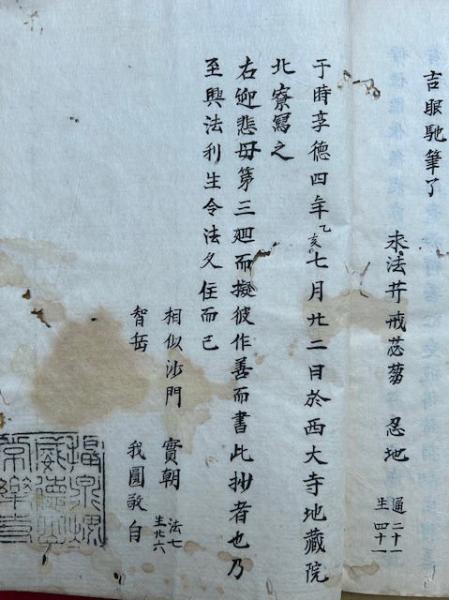 吉服馳筆了
求法廾戒苾蒭 忍地 通二十一 生四十一
于時享德四年乙亥七月廿二日於西大寺地藏院
北寮寫之
右迎悲母第三廻而擬彼作善而書此抄者也乃
至興法利生令法久住而已
相似沙門 實朝 法七 生廿六
智岳 我圓敬自